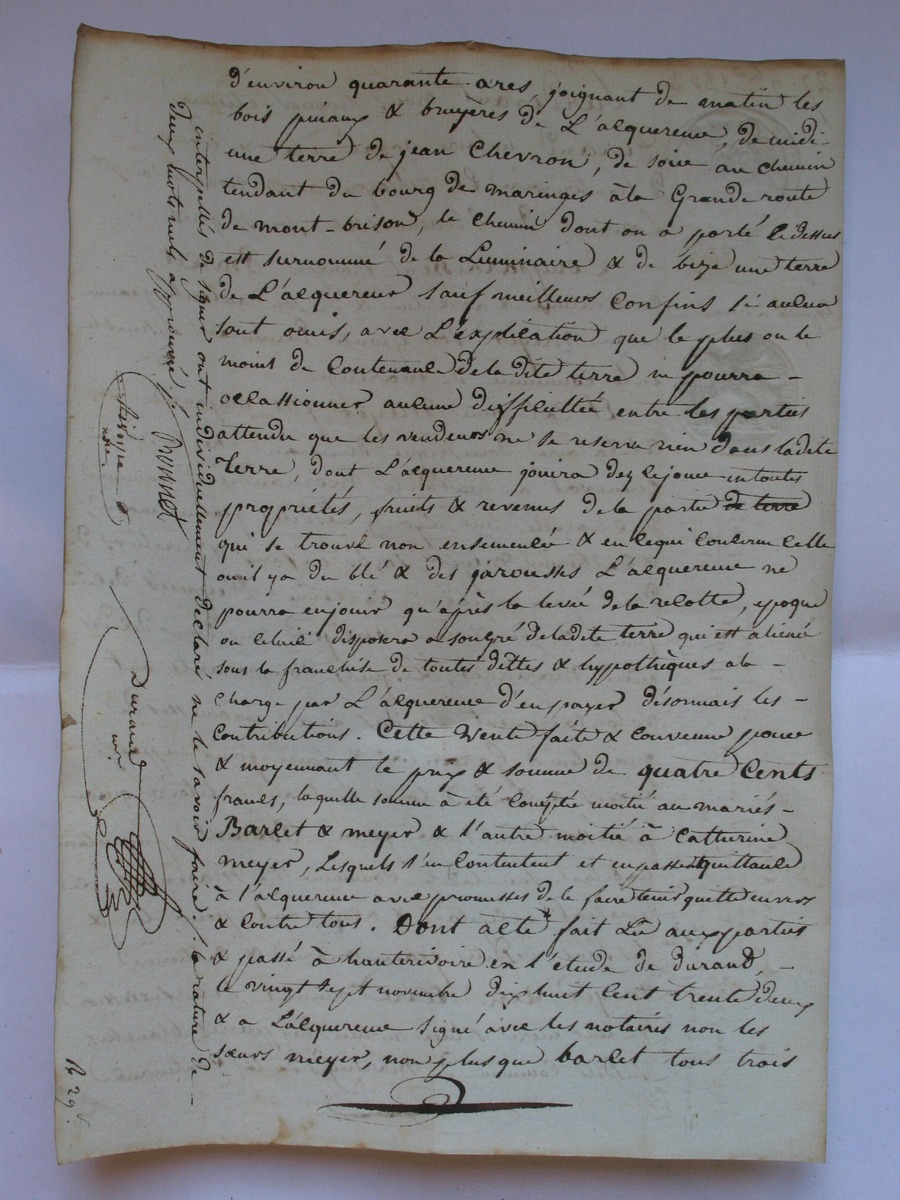 d'environ quarante ares, joignant de matin les
bois pinaux & bruyères de L'acquereur, de midi
une terre de jean Chevron, de soire au chemin
tendant du bourg de maringes à la Grande route
de mont-brison, le Chemin dont on a parlé ci dessus
est surnommé de la Luminaire & de bize une terre
de L'acquereur sauf meilleurs Confins si aucun
sont omis, avec L'explication que le plus ou le
moins de Contenance de la dite terre ne pourra -
occassionner aucune difficultée entre les parties
attendu que les vendeurs ne se reserve rien dans ladite
Terre, dont L'acquereur jouira dez cejour en toutes
propriétés, fruits & revenus de la partie de terre
qui se trouve non ensemencée & en cequi Concerne Celle
ou il y a du blé & des jarousses L'acquereur ne
pourra enjouir qu'après la levée de la recolte, epoque
ou celuici disposera a songré deladite terre qui est alienée
sous la franchise de toutes dettes & hypothèques a la -
Charge par L'acquereur d'en payer désormais les -
Contributions. Cette Vente faite & Convenue pour
& moyennant le prix & somme de quatre Cents
francs, laquelle somme à été Comptée moitié au mariés -
Barlet & meyer & l'autre moitié à Catherine
meyer, Lesquels s'en Contentent et en passent quittance
à l'acquereur avec promesses de le faire tenir quitte envers
& contre tous. Dont acte fait Lu aux parties
& passé à hauterivoire en l'etude de Durand, -
le vingt sept novembre dix huit cent trente deux
& a L'acquereur Signé avec les notaires non les
sœurs meyer, non plus que barlet tous trois
interpellés de signer ont individuellement declaré ne le savoir faire. la rature de -
deux mots nuls approuvé. j. Bonnet
Durand
nre
R 29